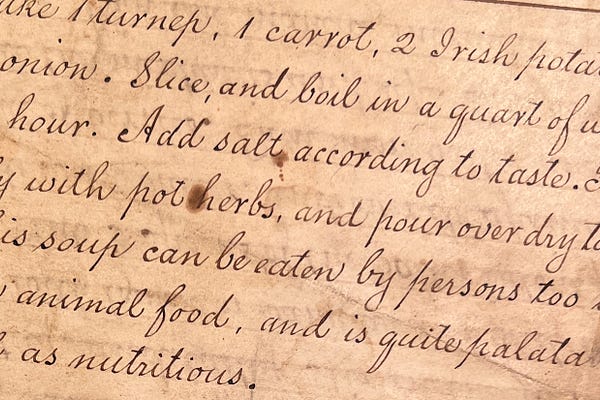 1 turnep, 1 carrot, 2 Irish
onion. Slice, and boil in a quart of
hour. Add salt according to taste.
with pot herbs, and pour over dry
is soup can be eaten by persons too
animal food, and is quite
as nutritious.